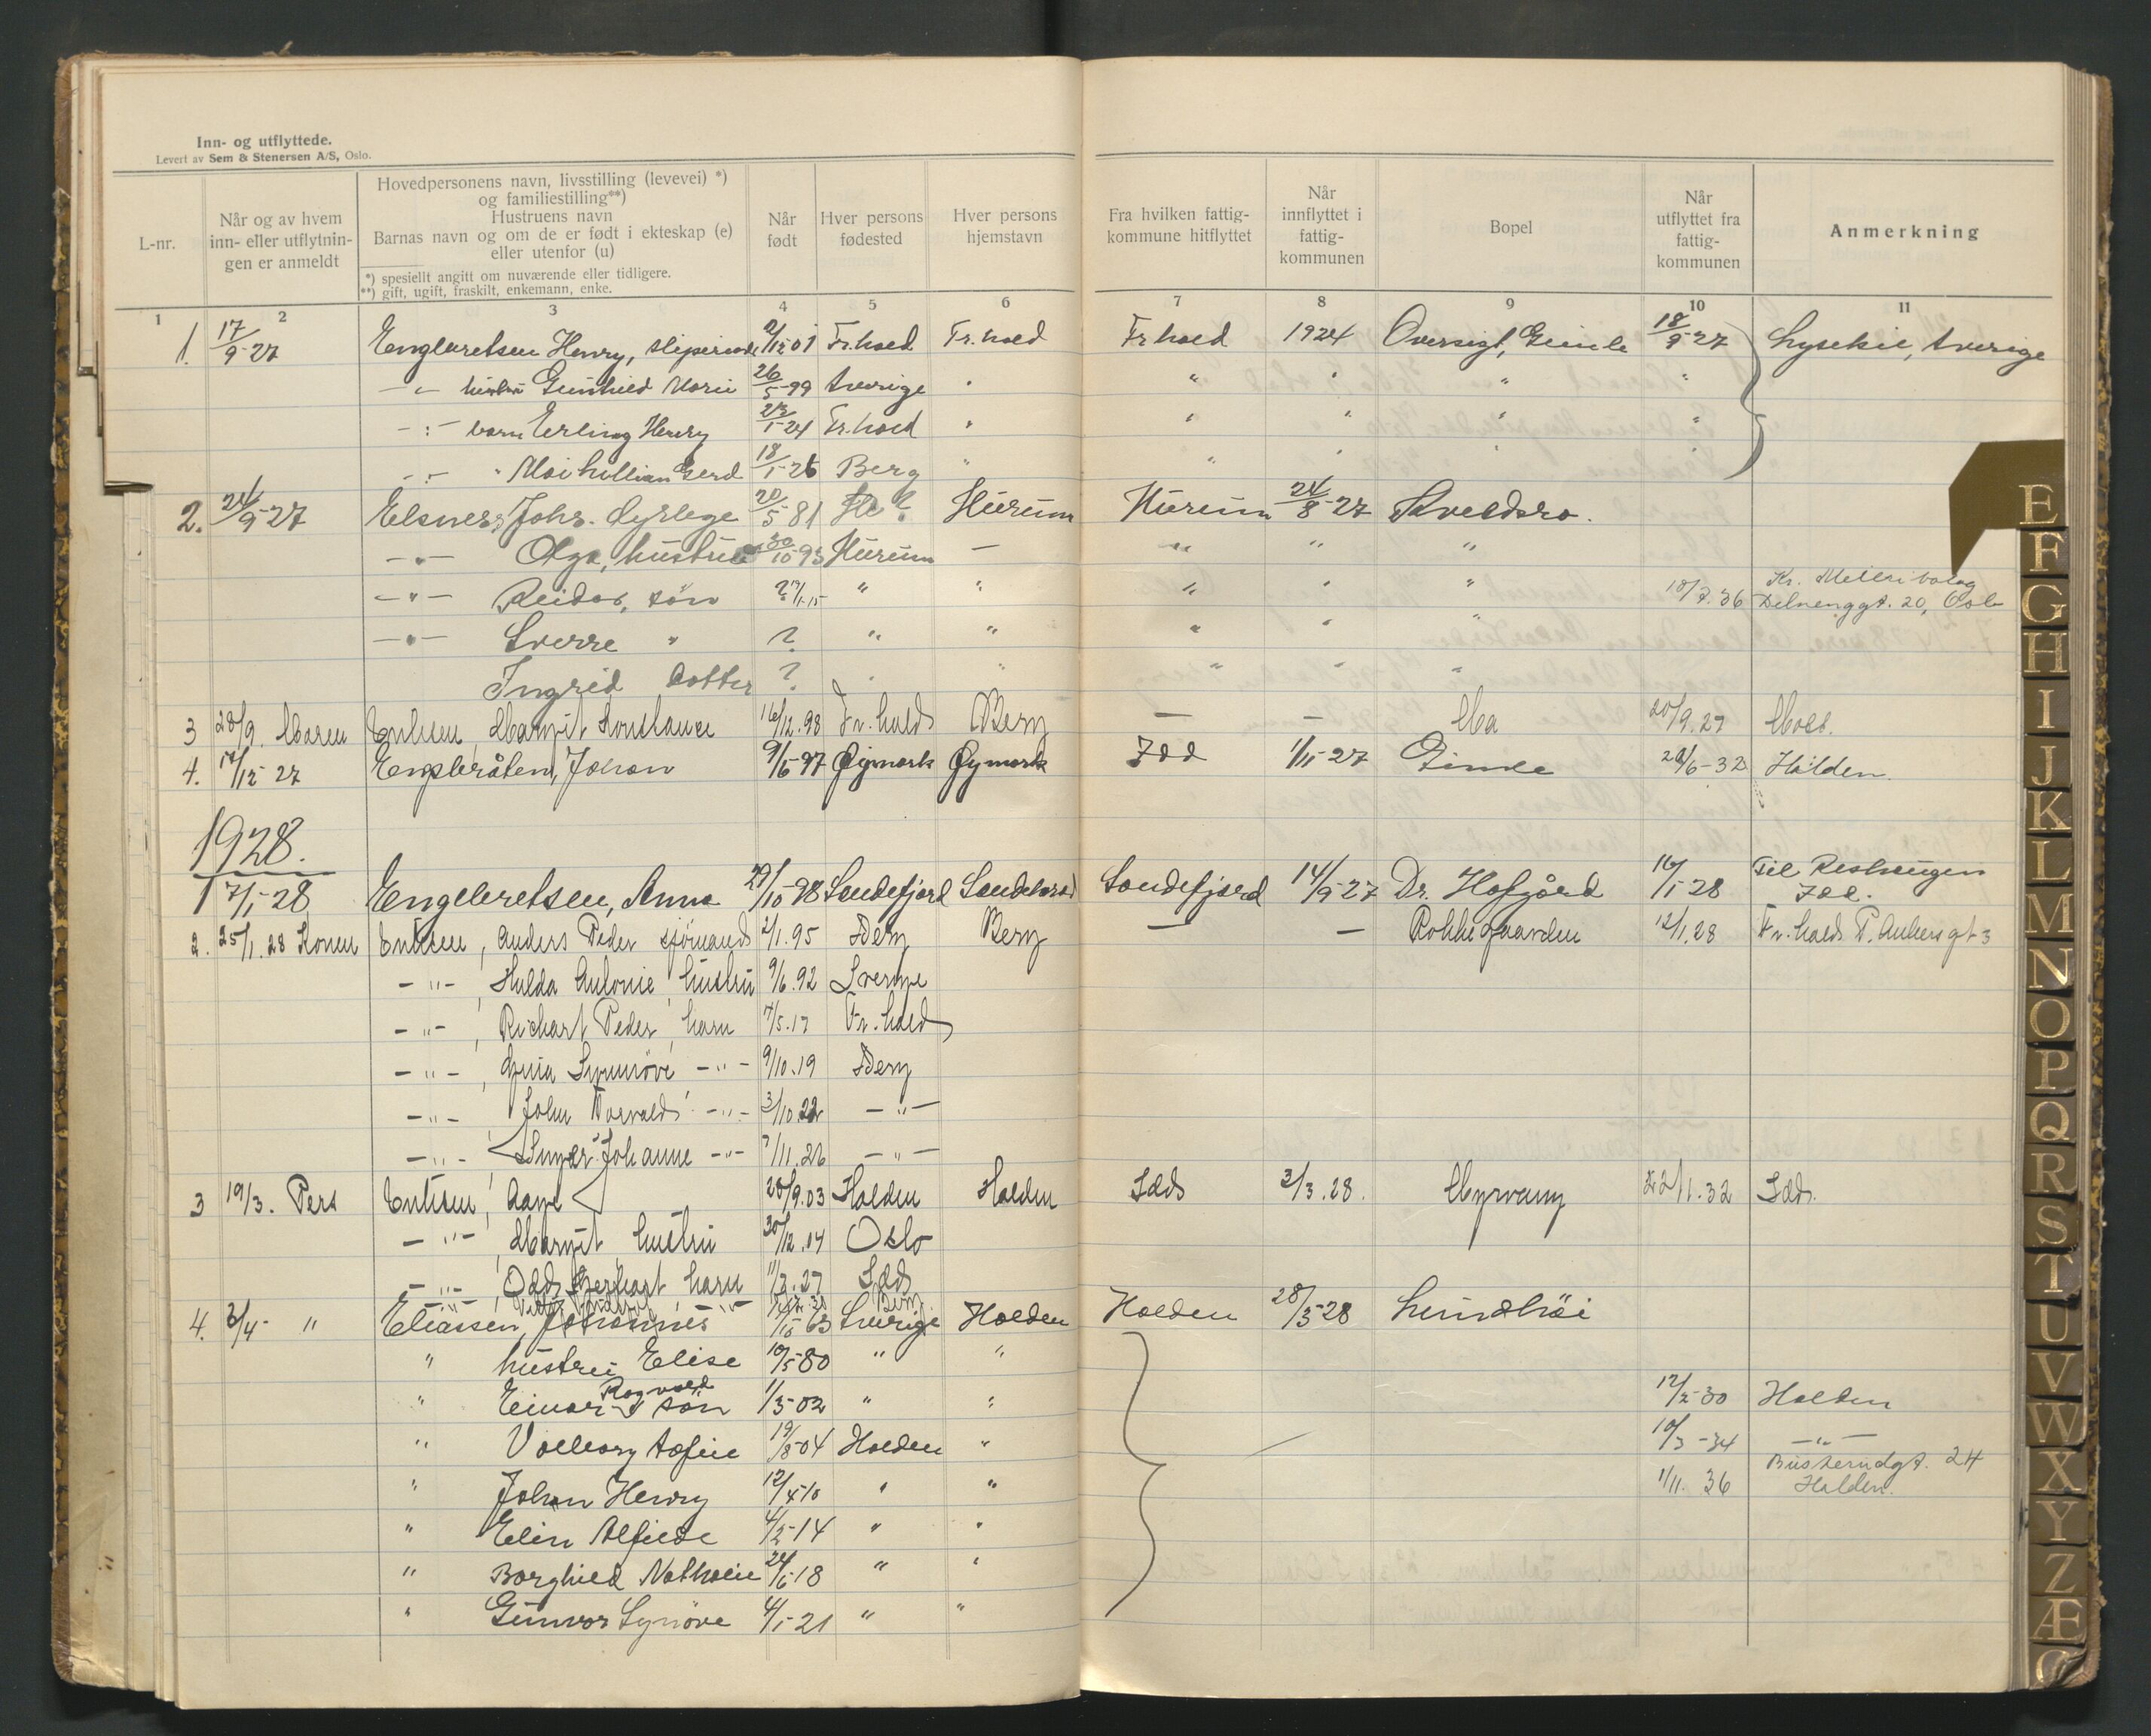 Inn- og utflyttede.
Levert av Sem & Stenersen A/S, Oslo.
L-nr.
Når og av hvem
inn- eller utflytnin-
gen er anmeldt
Hovedpersonens navn, livsstilling (levevei) *)
og familiestilling**)
Hustruens navn
Barnas navn og om de er født i ekteskap (e)
eller utenfor (u)
*) spesiellt angitt om nuværende eller tidligere.
**) gift, ugift, fraskilt, enkemann, enke.
Når
født
Hver persons
fødested
Hver persons
hjemstavn
Fra hvilken fattig-
kommune hitflyttet
Når
innflyttet i
fattig-
kommunen
Bopel
Når
utflyttet fra
fattig-
kommunen
Anmerkning
1 2 3 4 5 6 7 8 9 10 11
1. 17/9-27 Engebretsen Henry, 2/12-01 Fr.hald Fr.hald Fr hald 1924 Oversigt, Gimle 18/9-27 Lysekil, Sverige
-"- hustru Gunhild Marie 26/5-99 Sverige " " " " "
-"- barn Erling Henry 1-24 Fr.hald " " " " "
-"- " Mai Lillian Gerd 18/1-26 Berg " " " " "
2. 24/9-27 Elsness, Johs. 20/5 81 ? Hurum Hurum 24/8-27 Kveldsro.
-"- Olga, hustru 30/10-93 Hurum - " " "
-"- Reidar, søn ? " " " " " 18/7.36 Kr. Meieribolag
Delenenggt. 20, Oslo
-"- Sverre " ? " " " " "
Ingrid Datter ? " " " " "
3 28/9. Maren Eriksen, Margit Konstance 16/12.98 Fr.halds Berg - - Moa 20/9.27 Moss.
4. 17/12-27 Engebråten, Johan 9/6-97 Øymark Øymark Idd 1/11-27 Gimle 29/6-32 Halden.
1928.
1 7/1-28 Engebretsen, Anna 29/10-98 Sandefjord Sandeherad Sandefjord 14/9-27 Dr. Hofgård 16/1-28 Til Reshaugen
Idd.
2. 25/1.28 Konen Eriksen, Anders Peder sjømand 2/1.95 Berg Berg - - Rokkegaarden 12/1.28 Fr.halds P. Ankersgt 3
-"-, Hulda Antonie, hustru 9/6.92 Sverige
-"-, Richart Peder, barn 7/5.17 Fr.hald
-"-, Synnøve -"- 9/10.19 Berg
-"-, John Torvald -"- 3/10.22 -"-
-"-, Inger Johanne -"- 7/11.26 -"-
3 19/3. Pers Eriksen, Aage 28/9.03 Halden Halden Idds 2/3.28. Myrvang 22/11.32 Idds.
-"-, Margit, hustru 30/12.04 Oslo
-"-, Odd Gerhart, barn 11/3.27 Idds
-"- -"- Berg
4. 3/4- " Eliassen, Johannes 63 Sverige Halden Halden 28/3-28 Lundhøi
" hustru Elise 10/5-80 " "
" Einar Ragnvald søn 1/3-02 " " 12/2-30 Halden
" Valborg Sofie 19/8-04 Halden " 10/3-34 -"-
" Johan Henry 12/4-10 " " 1/11.36 Busterudgt. 24
Halden.
" Elin Alfilde 4/2-14 " "
" Borghild Nathalie 24/6-18 " "
" Gunvor Synøve 4/1-21 " "
E
F
G
H
I
J
K
L
M
N
O
P
Q
R
S
T
U
V
W
X
Y
Z
Æ